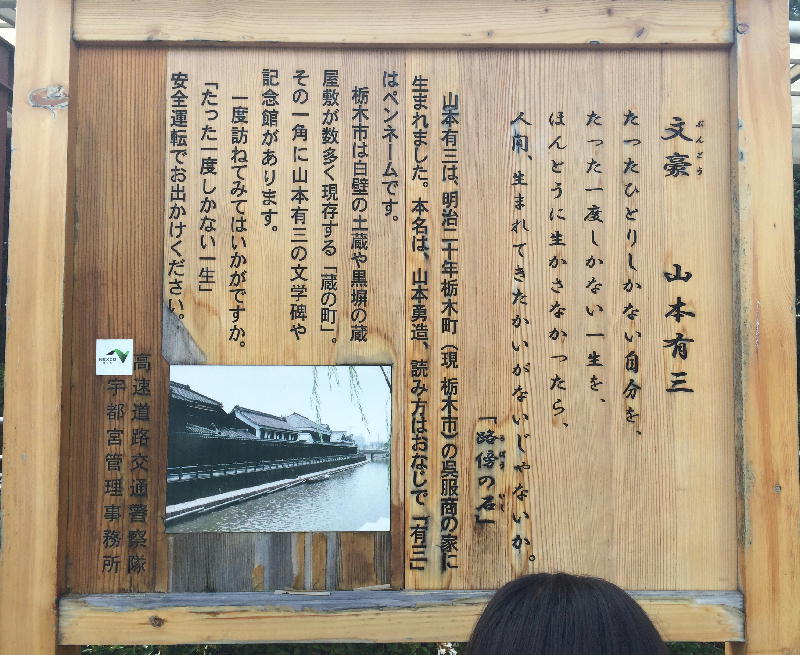 文豪 山本有三
ぶんごう
たったひとりしかない自分を、
たった一度しかない一生を、
ほんとうに生かさなかったら、
人間、生まれてきたかいがないじゃないか。
「路傍の石」
ろぼう いし
山本有三は、明治二十年栃木町（現 栃木市）の呉服商の家に
生まれました。本名は、山本勇造、読み方はおなじで「有三」
はペンネームです。
栃木市は白壁の土蔵や黒塀の蔵
屋敷が数多く現存する「蔵の町」。
その一角に山本有三の文学碑や
記念館があります。
一度訪ねてみてはいかがですか。
「たった一度しかない一生」
安全運転でお出かけください。
高速道路交通警察隊
NEXCO
宇都宮管理事務所